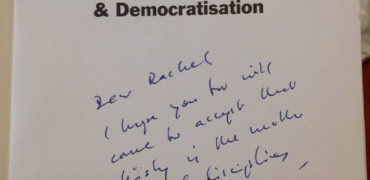 & Democratisation
Dear Rachel
I hope you too will
come to accept that
history is the mother
disciplines